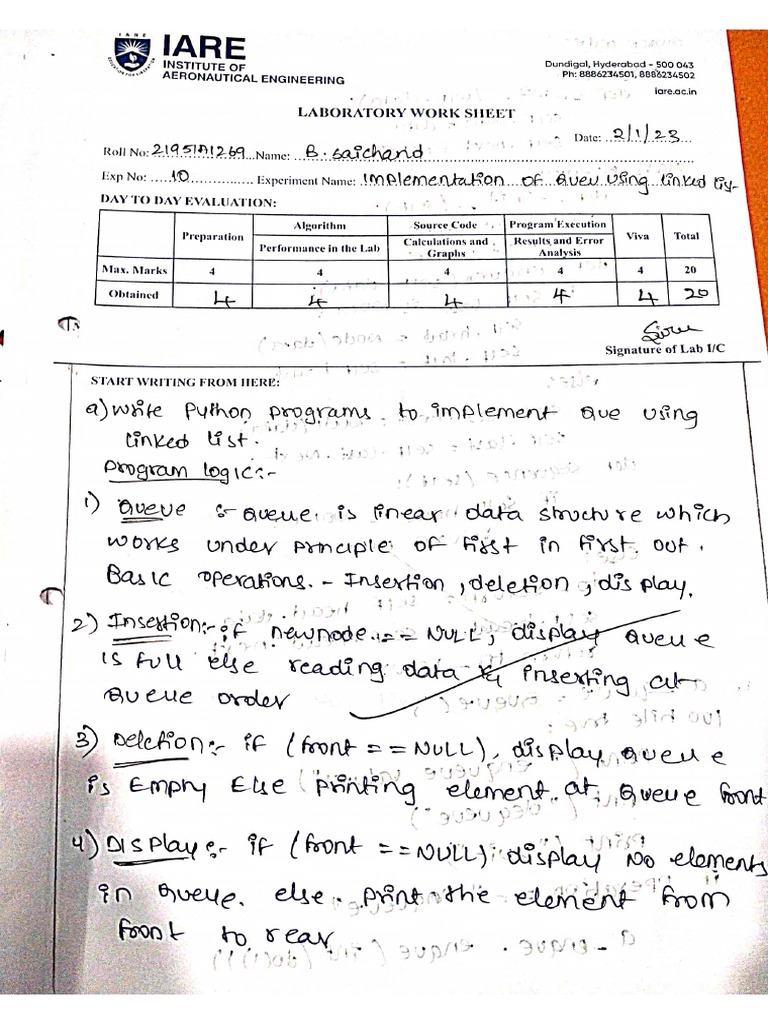 IARE
INSTITUTE OF
AERONAUTICAL ENGINEERING
Dundigal, Hyderabad - 500 043
Ph: 8886234501, 8886234502
iare.ac.in
LABORATORY WORK SHEET
Date: 2/1/23
Roll No: 21951A1269 Name: B. Saicharid
Exp No: 10 Experiment Name: Implementation of Queu using linked lis-
DAY TO DAY EVALUATION:
Preparation Algorithm Source Code Program Execution Viva Total
Performance in the Lab Calculations and Graphs Results and Error Analysis
Max. Marks 4 4 4 4 4 20
Obtained 4 4 4 4 4 20
Signature of Lab I/C
START WRITING FROM HERE:
a) Write Python programs to implement Que using
linked list.
Program logic:-
1) Queue :- Queue is linear data structure which
works under principle of first in first out.
Basic operations. - Insertion, deletion, display.
2) Insertion:- if newnode == NULL, display Queue
is full else reading data & inserting at
Queue order
3) Deletion:- if (front == NULL), display Queue
is Empty Else printing element at Queue front
4) Display:- if (front == NULL) display No elements
in Queue. else. print the element from
front to rear